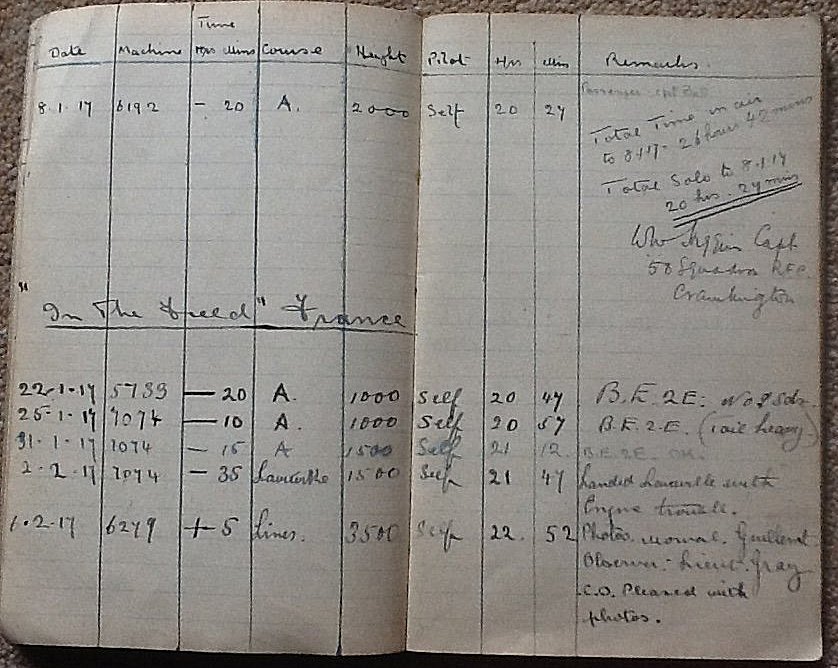 Time
Date Machine Hrs Mins Course Height Pilot Hrs Mins Remarks.
8.1.17 6192 - 20 A. 2000 Self 20 27
Passenger
Total Time in air
to 8.1.17 - 26 hours 42 mins
Total Solo to 8.1.17
20 hrs. 27 mins
Capt
58 Squadron R.F.C.
Cramlington
"In The Field" France
22.1.17 5733 - 20 A. 1000 Self 20 47 B.E.2E. No 8 Sdn.
25.1.17 7074 - 10 A. 1000 Self 20 57 B.E.2.E. (Tail heavy)
31.1.17 7074 - 15 A 1500 Self 21 12. B.E.2E. OK.
2.2.17 7074 - 35 1500 Self 21 47 Landed with
Engine trouble.
6.2.17 6279 + 5 Lines. 3500 Self 22. 52 Photos.
Observer:- Lieut. Gray
C.O. Pleased with
photos.